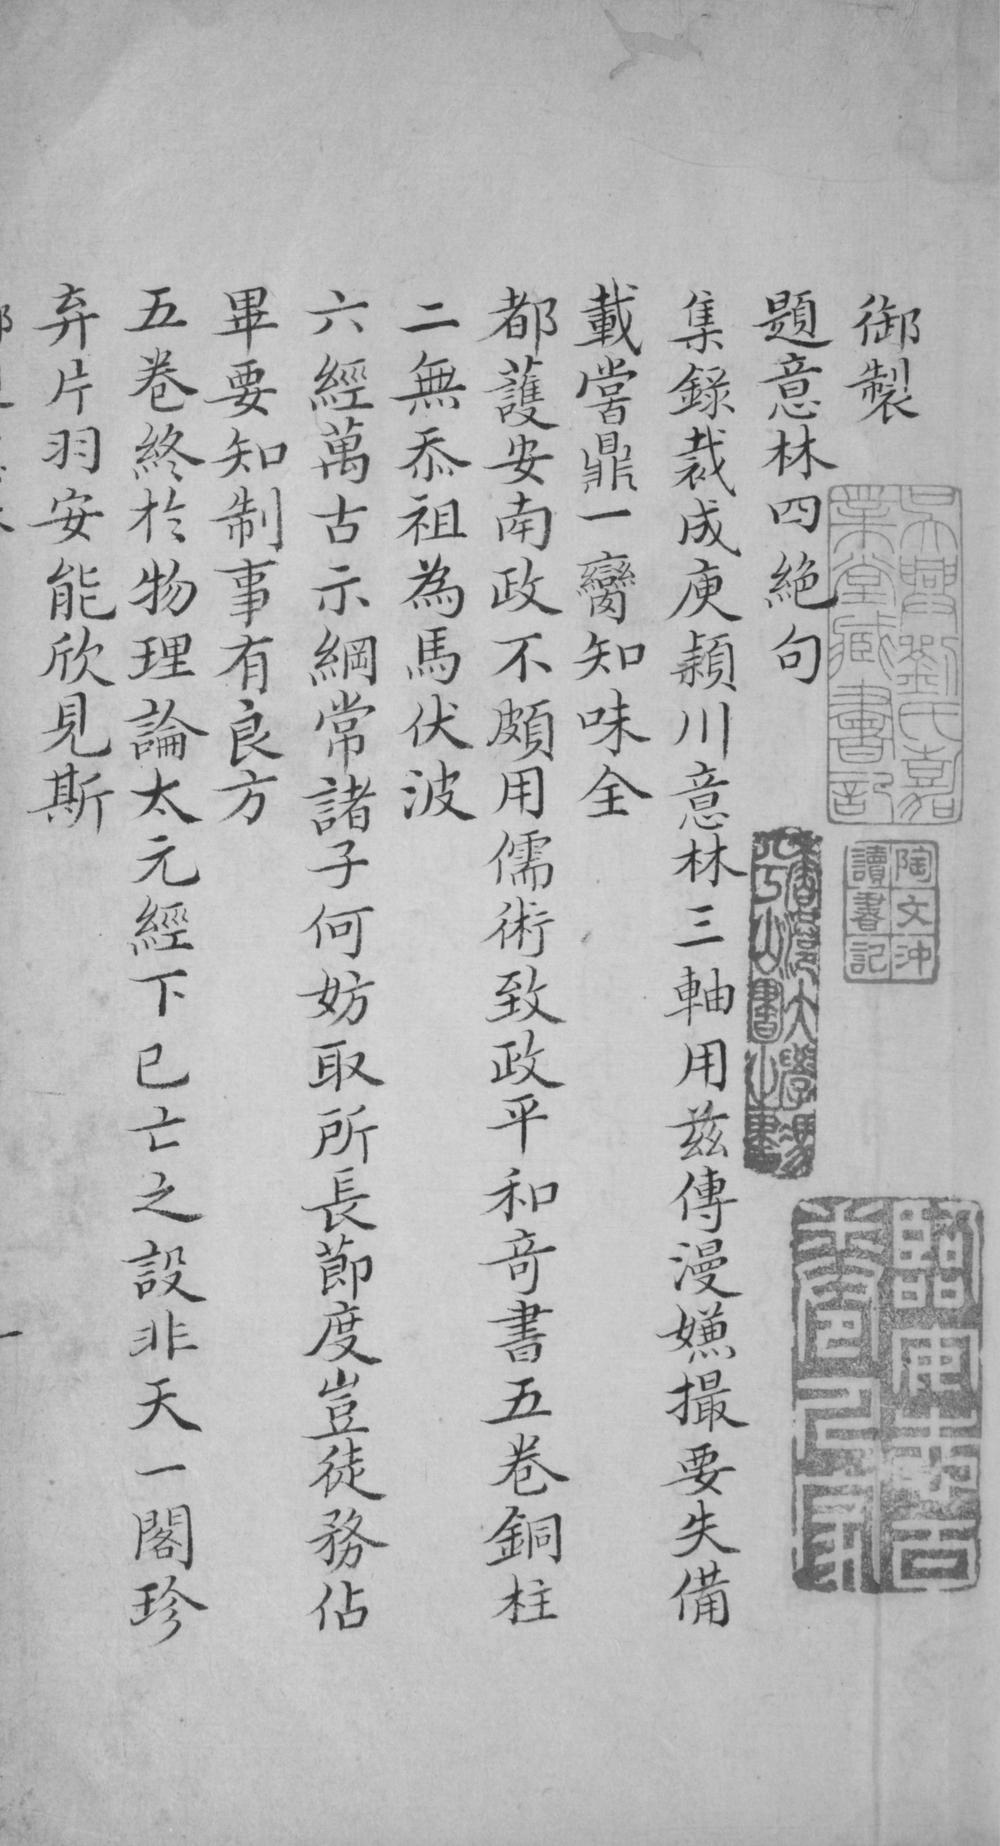 御製
題意林四絶句
集錄裁成庾潁川意林三軸用兹傳漫嫌撮要失備
載嘗鼎一臠知味全
都護安南政不頗用儒術致政平和竒書五卷銅柱
二無忝祖為馬伏波
六經萬古示綱常諸子何妨取所長節度豈徒務佔
畢要知制事有良方
五卷終於物理論太元經下已亡之設非天一閣珍
弆片羽安能欣見斯
吳興劉氏嘉
業堂藏書記
陶文沖
讀書記
香港大學馮
平山書